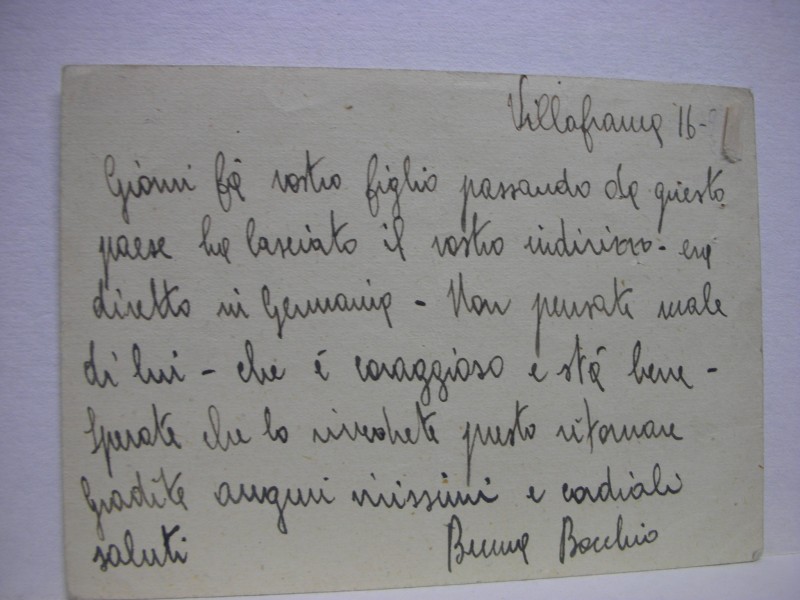 Villafranca 16-
Giorni fà vostro figlio passando da questo
paese ha lasciato il vostro indirizzo - era
diretto in Germania - Non pensate male
di lui - che é coraggioso e stà bene -
Sperate che lo rivedrete presto ritornare
Gradite auguri vivissimi e cordiali
saluti Bruna Bocchio